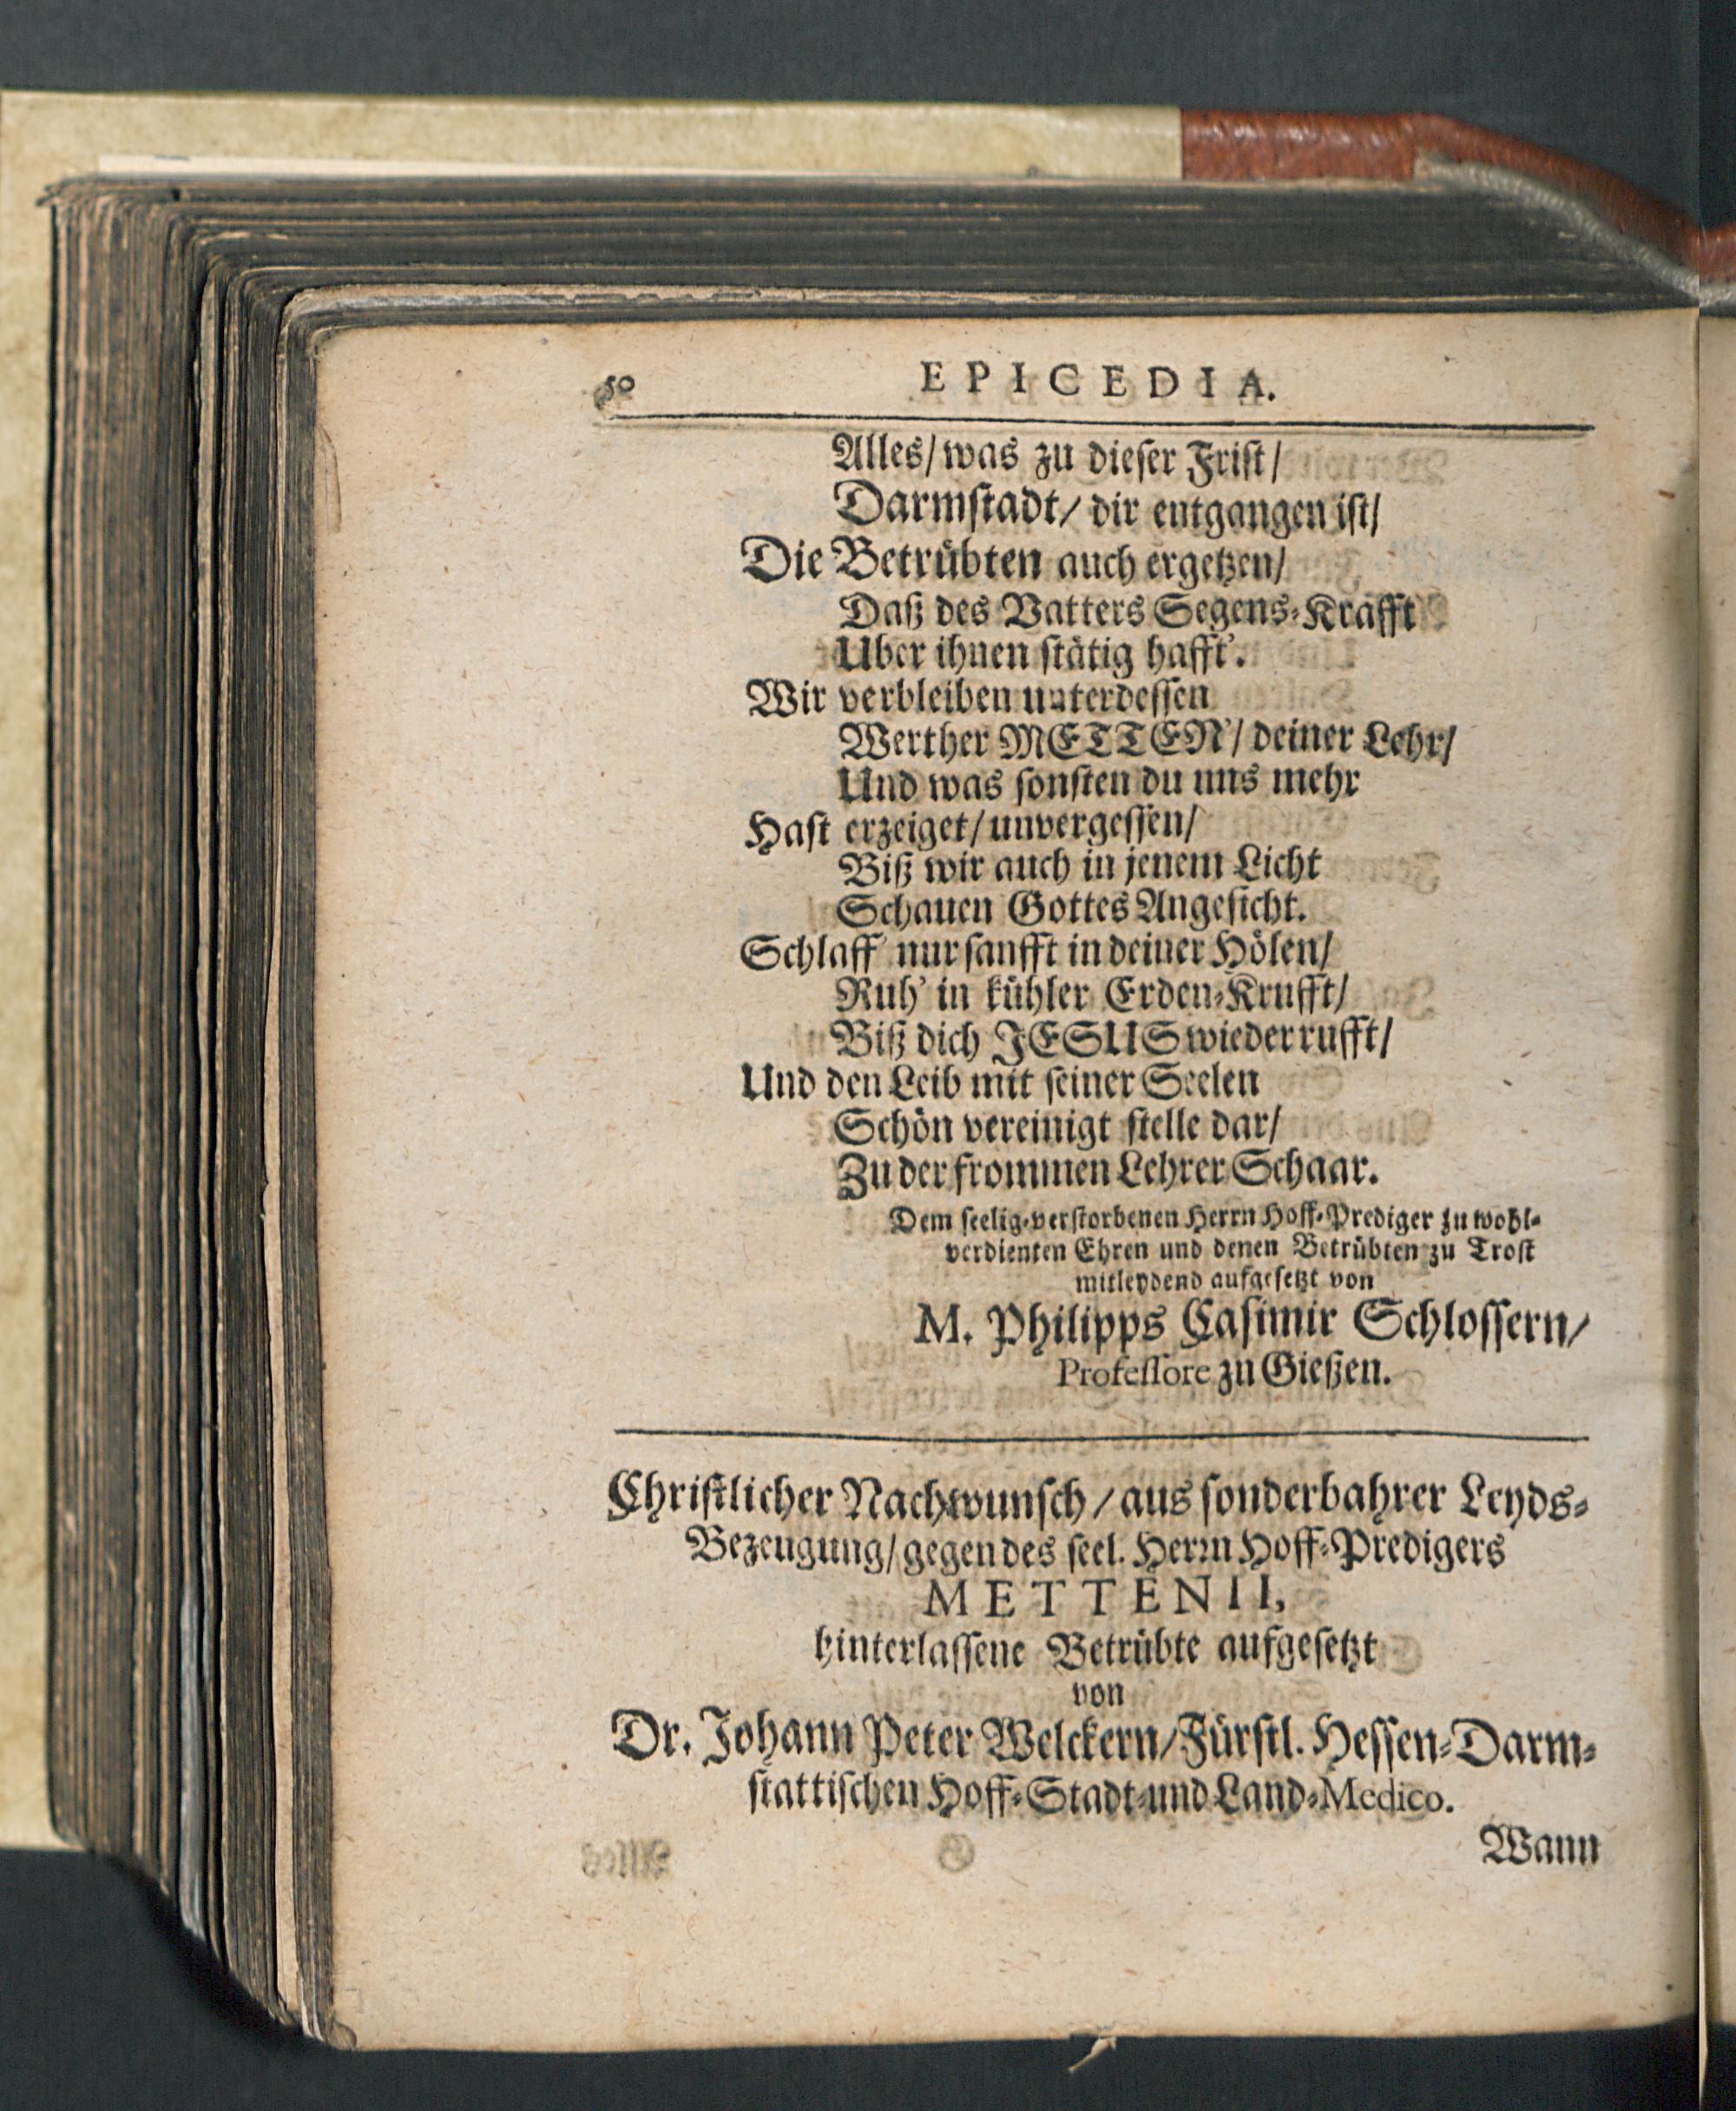 50 EPICEDIA.
Alles/ was zu dieser Frist/
Darmstadt/ dir entgangen ist/
Die Betrübten auch ergetzen/
Daß des Vatters Segens-Krafft
Uber ihnen stätig hafft'.
Wir verbleiben unterdessen
Werther METTEN'/ deiner Lehr/
Und was sonsten du uns mehr
Hast erzeiget/ unvergessen/
Biß wir auch in jenem Licht
Schauen Gottes Angesicht.
Schlaff' nur sanfft in deiner Hölen/
Ruh' in kühler Erden-Krufft/
Biß dich JESUS wieder rufft/
Und den Leib mit seiner Seelen
Schön vereinigt stelle dar/
Zu der frommen Lehrer Schaar.
Dem seelig-verstorbenen Herrn Hoff-Prediger zu wohl-
verdienten Ehren und denen Betrübten zu Trost
mitleydend aufgesetzt von
M. Philipps Casimir Schlossern/
Professore zu Gießen.
Christlicher Nachwunsch/ aus sonderbahrer Leyds-
Bezeugung/ gegen des seel. Herrn Hoff-Predigers
METTENII,
hinterlassene Betrübte aufgesetzt
von
Dr. Johann Peter Welckern/ Fürstl. Hessen-Darm-
stattischen Hoff-Stadt-und Land-Medico.
Wann